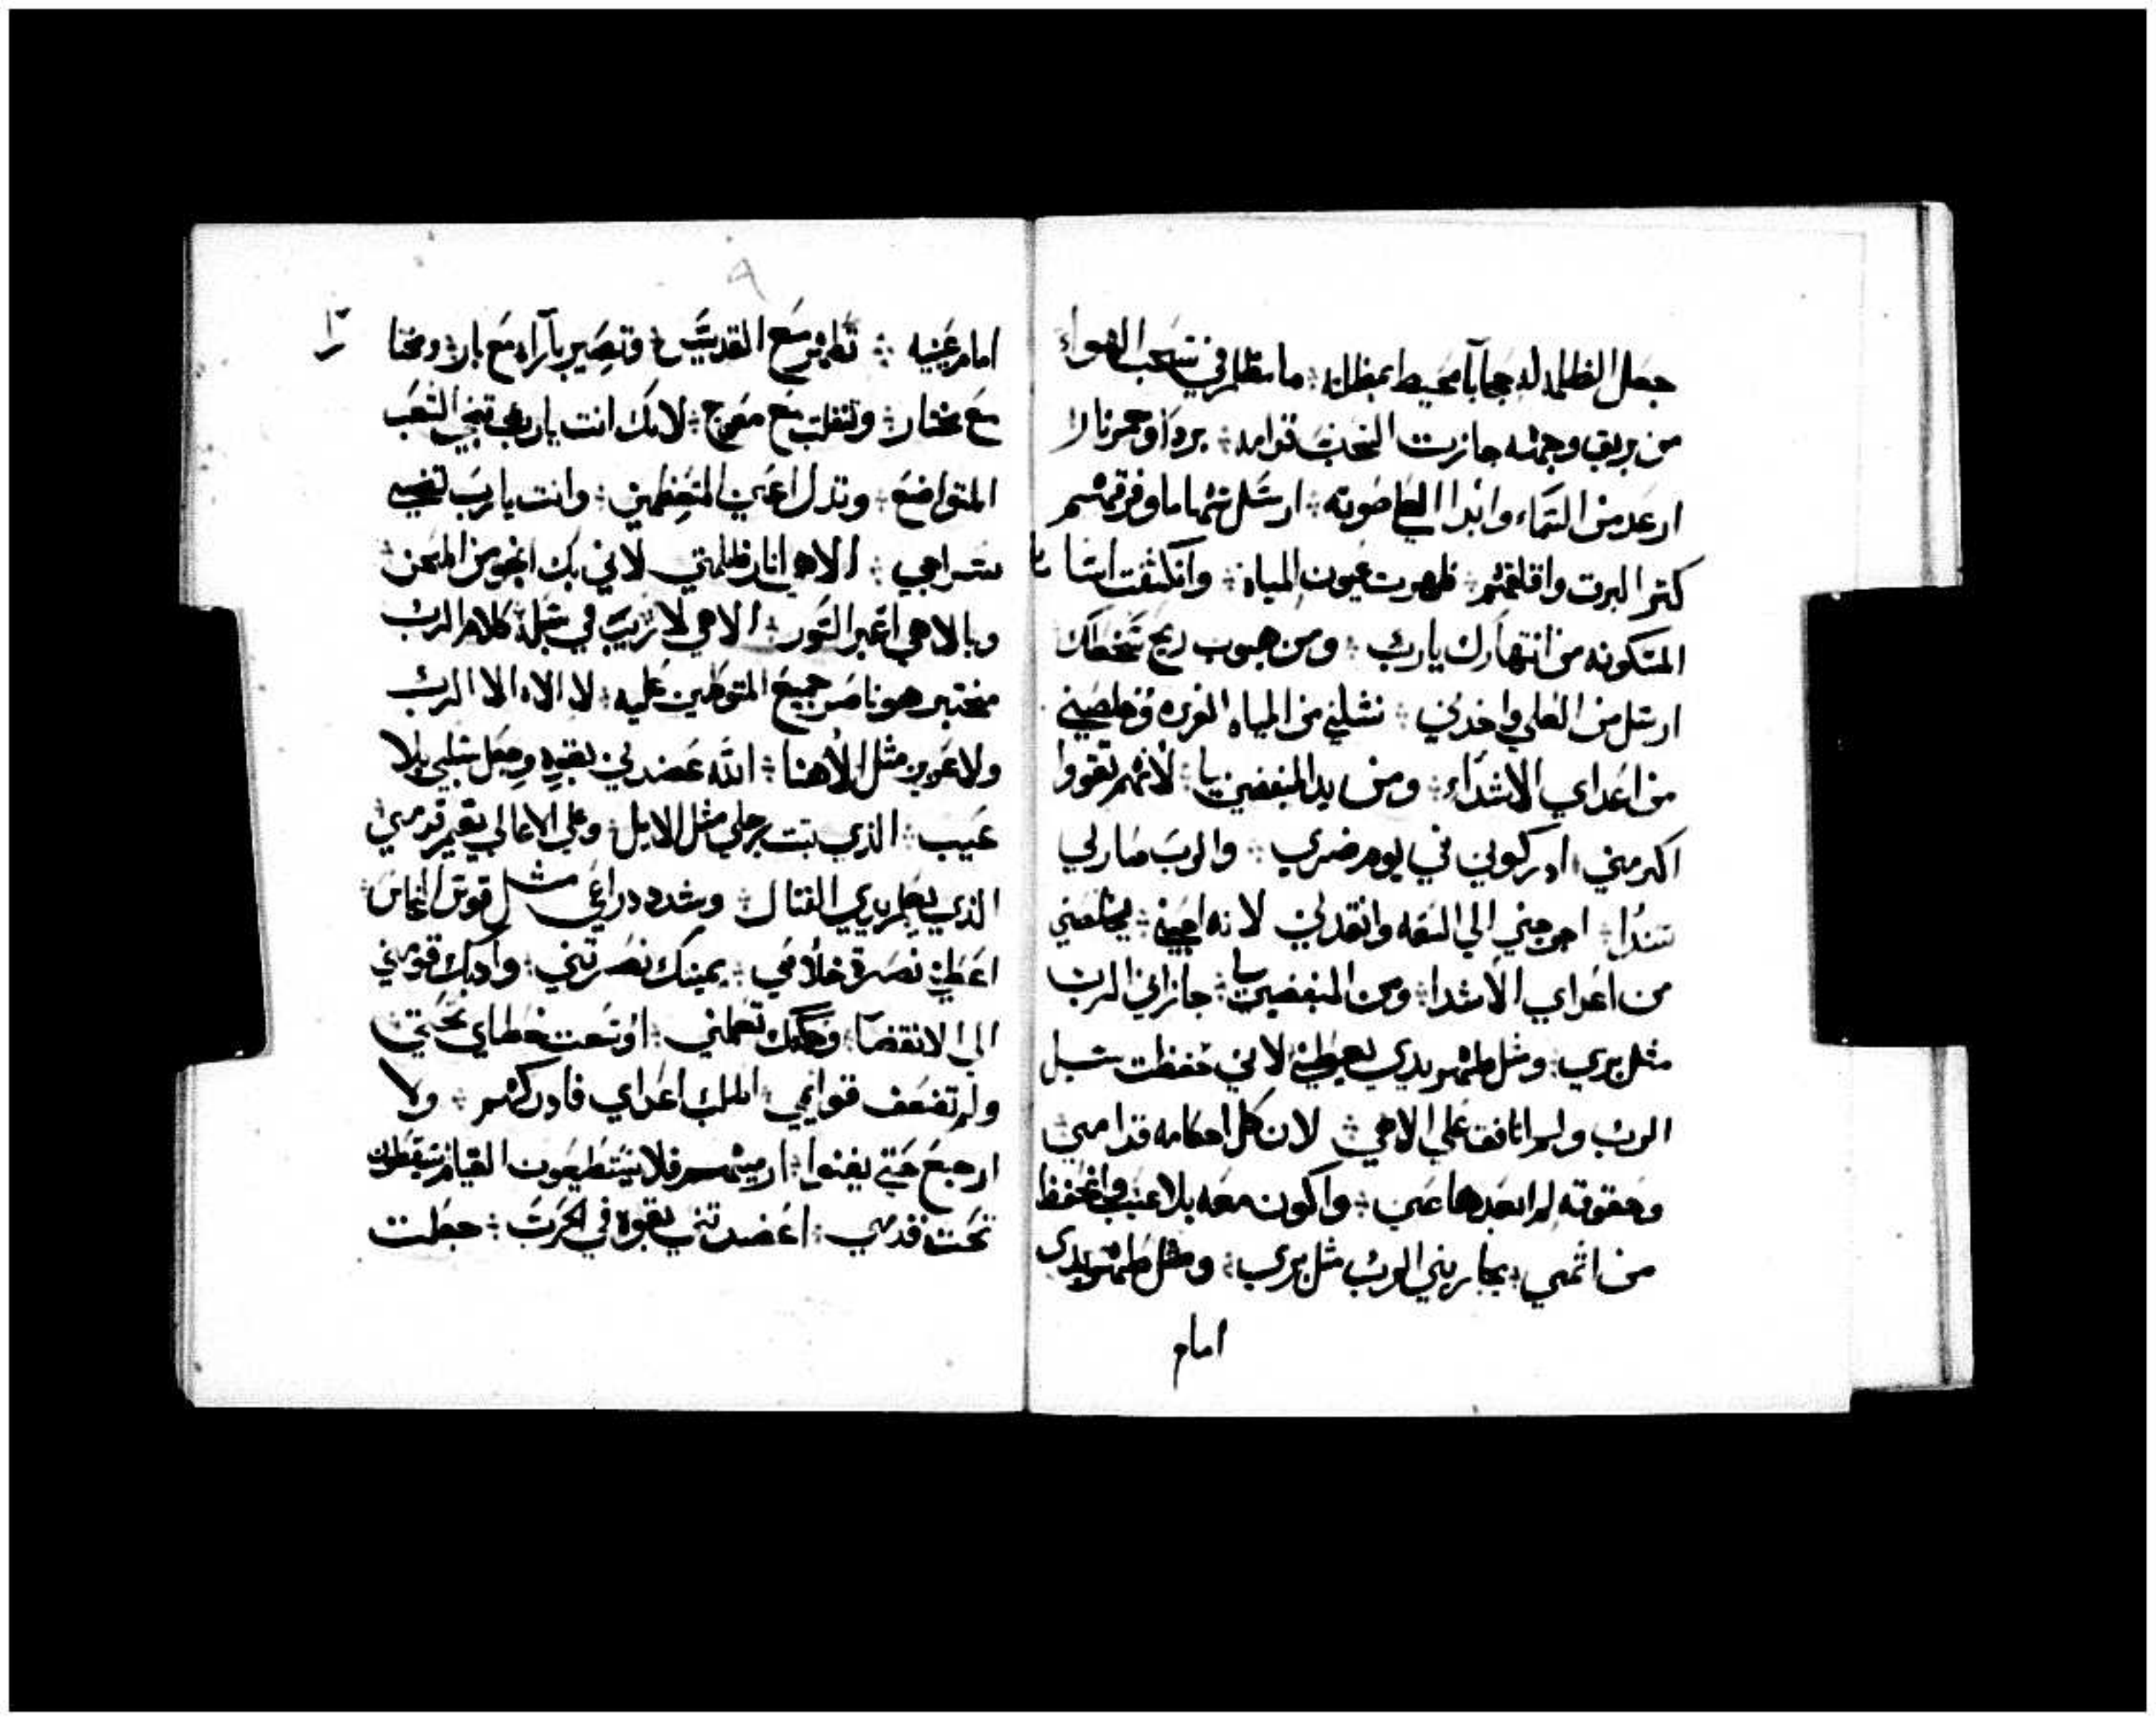 جعل الظلمه له حجاباً محيط بمظلته ❖ ما مظلم في سحب الهواء
من بريق وجهه جازت السحب قدامه ❖ برداً وجمر نار
ارعد من السماء وابدا العلي صوته ❖ ارسل سهاما وفرقهم
كثر البرق واقلقهم ❖ ظهرت عيون المياه ❖ وانكشفت اساسات
المسكونه من انتهارك يا رب ❖ ومن هبوب ريح سخطك
ارسل من العلي واخدني ❖ نشلني من المياه الغزيره وخلصني
من اعداي الاشداء ❖ ومن يد المبغضين لي ❖ لانهم تقووا
اكتر مني ❖ ادركوني في يوم ضري ❖ والرب صار لي
سندا ❖ اخرجني الي السعه وانقدني لانه احبني ❖ يخلصني
من اعداي الاشدا ❖ ومن المبغضين لي ❖ جازاني الرب
مثل بري ❖ ومثل طهر يدي يعطيني لاني حفظت سبل
الرب ولم انافق علي الاهي ❖ لان كل احكامه قدامي
وحقوقه لم ابعدها عني ❖ واكون معه بلا عيب واتحفظ
من اثمي ❖ يجازيني الرب مثل بري ❖ ومثل طهر يدي
امام
٩
امام عينيه ❖ تطهر مع القديس ❖ وتصير باراً مع بار ❖ ومختارا
مع مختار ❖ وتنقلب مع معوج ❖ لانك انت يا رب تنجي الشعب
المتواضع ❖ وتدل اعين المتعظمين ❖ وانت يا رب تضي
سراجي ❖ الاهي انار ظلمتي لاني بك انجو من المحن ❖
وبالاهي اعبر السور ❖ الاهي لا ريب في سبله كلام الرب
مختبر هو ناصر جميع المتوكلين عليه ❖ لا الاه الا الرب
ولا عزيز مثل الاهنا ❖ الله عضدني بقوه وجعل سبلي بلا
عيب ❖ الذي ثبت رجلي مثل الايل ❖ وعلي الاعالي يقيم قدمي
الذي يعلم يدي القتال ❖ وشدد دراعي مثل قوس النحاس
اعطاني نصرة خلاصي ❖ يمينك نصرتني ❖ وادبك قومني
الي الانقضا ❖ وحكمك تعلمني ❖ اوسعت خطاي تحتي
ولم تضعف قوايمي ❖ اطلب اعداي فادركهم ❖ ولا
ارجع حتي يفنوا ❖ ارميهم فلا يستطيعون القيام يسقطون
تحت قدمي ❖ اعضدتني بقوه في الحرب ❖ جعلت